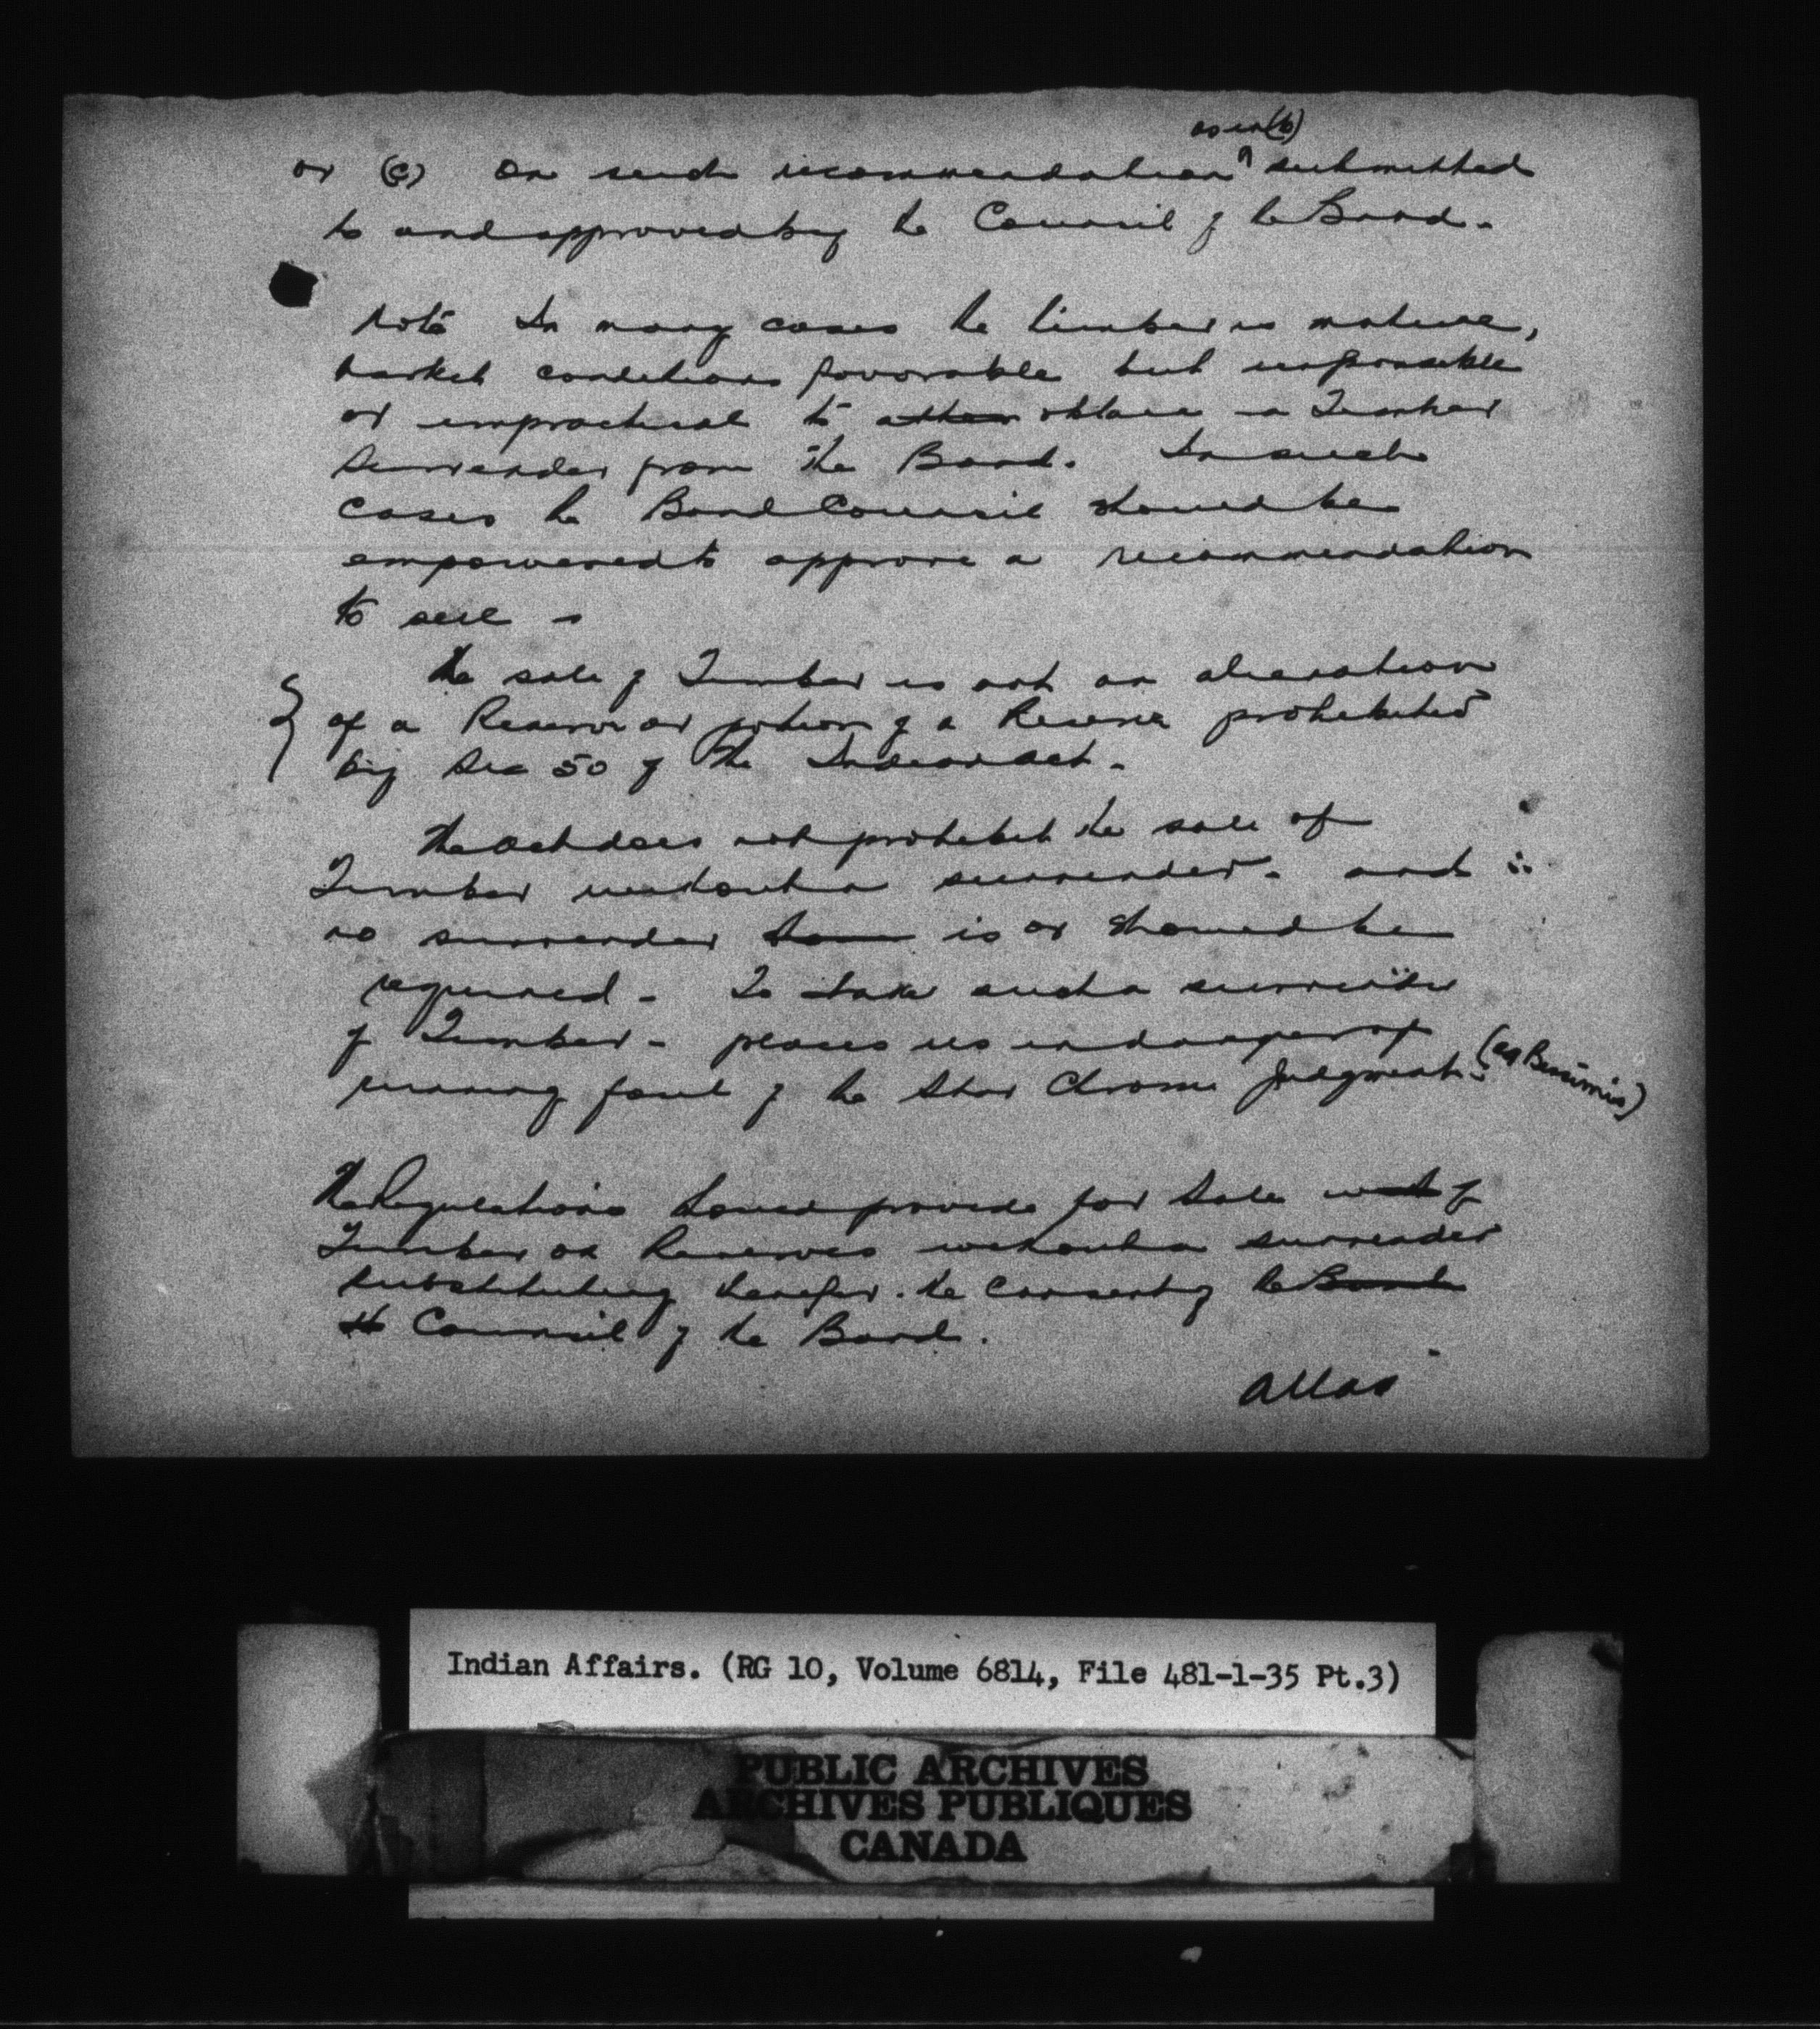 as in (b)
or (c) On such recommendation ^ submitted
to and approved by the Council of the Band.
Note In many cases the timber is mature,
market conditions favorable but impossible
or impractical to obtain a Timber
Surrender from the Band. In such
cases the Band Council should be
empowered to approve a recommendation
to sell -
The sale of Timber is not an alienation
of a Reserve or portion of a Reserve prohibited
by Sec 50 of the Indian Act.
The Act does not prohibit the sale of
Timber without a surrender. and ∴
no surrender is or should be
required - To take such a surrender
of Timber - places us in danger of
running foul of the Star Chrome Judgment. (eg Bersimis)
The Regulations should provide for sale of
Timber on Reserves without a surrender
substituting therefor the consent of the
Council of the Band.
Indian Affairs. (RG 10, Volume 6814, File 481-1-35 Pt.3)
PUBLIC ARCHIVES
ARCHIVES PUBLIQUES
CANADA